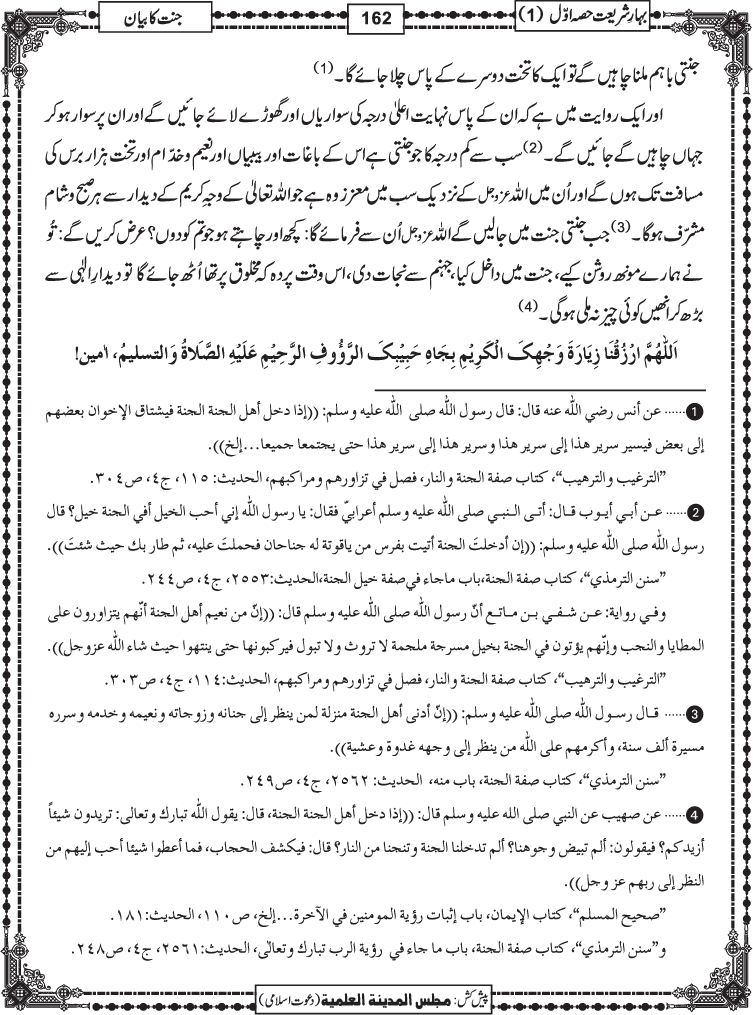 بہارِ شریعت حصہ اوّل (1)
162
جنت کا بیان
جنتی باہم ملنا چاہیں گے تو ایک کا تخت دوسرے کے پاس چلا جائے گا۔ (1)
اور ایک روایت میں ہے کہ ان کے پاس نہایت اعلیٰ درجہ کی سواریاں اور گھوڑے لائے جائیں گے اور ان پر سوار ہو کر
جہاں چاہیں گے جائیں گے۔ (2) سب سے کم درجہ کا جو جنتی ہے اس کے باغات اور بیبیاں اور نعیم و خدّام اور تخت ہزار برس کی
مسافت تک ہوں گے اور اُن میں اللہ عزوجل کے نزدیک سب میں معزز وہ ہے جو اللہ تعالیٰ کے وجہِ کریم کے دیدار سے ہر صبح و شام
مشرّف ہوگا۔ (3) جب جنتی جنت میں جالیں گے اللہ عزوجل اُن سے فرمائے گا: کچھ اور چاہتے ہو جو تم کو دوں؟ عرض کریں گے: تُو
نے ہمارے مونھ روشن کیے، جنت میں داخل کیا، جہنم سے نجات دی، اس وقت پردہ کہ مخلوق پر تھا اُٹھ جائے گا تو دیدارِ الٰہی سے
بڑھ کر انھیں کوئی چیز نہ ملی ہوگی۔ (4)
اَللّٰهُمَّ ارْزُقْنَا زِيَارَةَ وَجْهِكَ الْكَرِيْمِ بِجَاهِ حَبِيْبِكَ الرَّؤُوفِ الرَّحِيْمِ عَلَيْهِ الصَّلَاةُ وَالتسليمُ، اٰمين!
1 ...... عن أنس رضي الله عنه قال: قال رسول الله صلى الله عليه وسلم: ((إذا دخل أهل الجنة الجنة فيشتاق الإخوان بعضهم
إلى بعض فيسير سرير هذا إلى سرير هذا وسرير هذا إلى سرير هذا حتى يجتمعا جميعا...إلخ)).
”الترغيب والترهيب“، كتاب صفة الجنة والنار، فصل في تزاورهم ومراكبهم، الحديث: ١١٥، ج٤، ص٣٠٤.
2 ...... عن أبي أيوب قال: أتى النبي صلى الله عليه وسلم أعرابيّ فقال: يا رسول الله إني أحب الخيل أفي الجنة خيل؟ قال
رسول الله صلى الله عليه وسلم: ((إن أدخلتَ الجنة أتيت بفرس من ياقوتة له جناحان فحملتَ عليه، ثم طار بك حيث شئتَ)).
”سنن الترمذي“، كتاب صفة الجنة، باب ماجاء في صفة خيل الجنة، الحديث: ٢٥٥٣، ج٤، ص٢٤٤.
وفي رواية: عن شفي بن ماتع أنّ رسول الله صلى الله عليه وسلم قال: ((إنّ من نعيم أهل الجنة أنّهم يتزاورون على
المطايا والنجب وإنّهم يؤتون في الجنة بخيل مسرجة ملجمة لا تروث ولا تبول فيركبونها حتى ينتهوا حيث شاء الله عزوجل)).
”الترغيب والترهيب“، كتاب صفة الجنة والنار، فصل في تزاورهم ومراكبهم، الحديث: ١١٤، ج٤، ص٣٠٣.
3 ...... قال رسول الله صلى الله عليه وسلم: ((إنّ أدنى أهل الجنة منزلة لمن ينظر إلى جنانه وزوجاته ونعيمه وخدمه وسرره
مسيرة ألف سنة، وأكرمهم على الله من ينظر إلى وجهه غدوة وعشية)).
”سنن الترمذي“، كتاب صفة الجنة، باب منه، الحديث: ٢٥٦٢، ج٤، ص٢٤٩.
4 ...... عن صهيب عن النبي صلى الله عليه وسلم قال: ((إذا دخل أهل الجنة الجنة، قال: يقول الله تبارك وتعالى: تريدون شيئاً
أزيدكم؟ فيقولون: ألم تبيض وجوهنا؟ ألم تدخلنا الجنة وتنجنا من النار؟ قال: فيكشف الحجاب، فما أعطوا شيئا أحب إليهم من
النظر إلى ربهم عز وجل)).
”صحيح المسلم“، كتاب الإيمان، باب إثبات رؤية المومنين في الآخرة...إلخ، ص١١٠، الحديث: ١٨١.
و”سنن الترمذي“، كتاب صفة الجنة، باب ما جاء في رؤية الرب تبارك وتعالى، الحديث: ٢٥٦١، ج٤، ص٢٤٨.
پیش کش: مجلس المدينة العلمية (دعوت اسلامی)